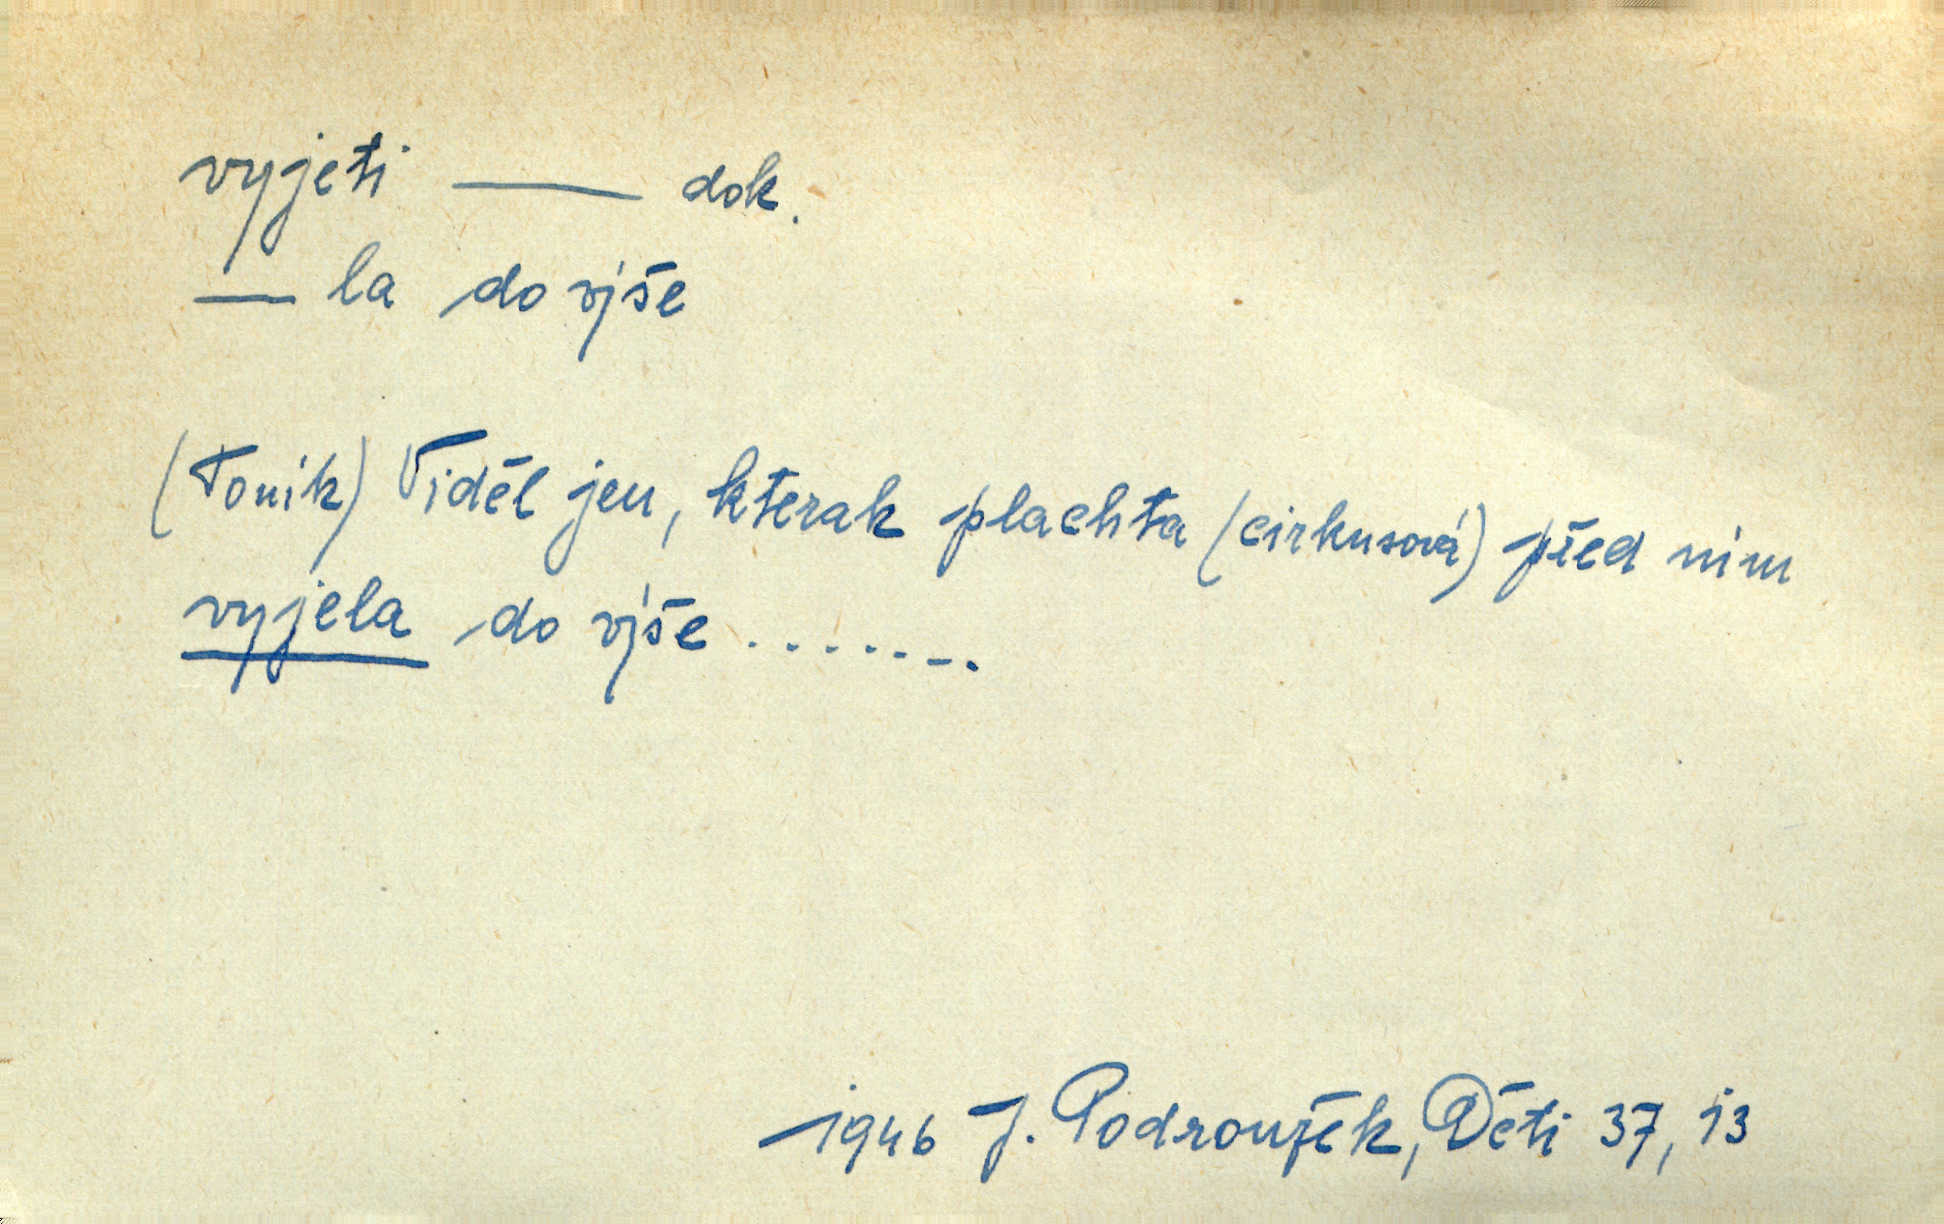 vyjeti — dok.
— la do výše
(Toník) Viděl jen, kterak plachta (cirkusová) před ním
vyjela do výše ........
1946 J. Podroužek, Děti 37, 13